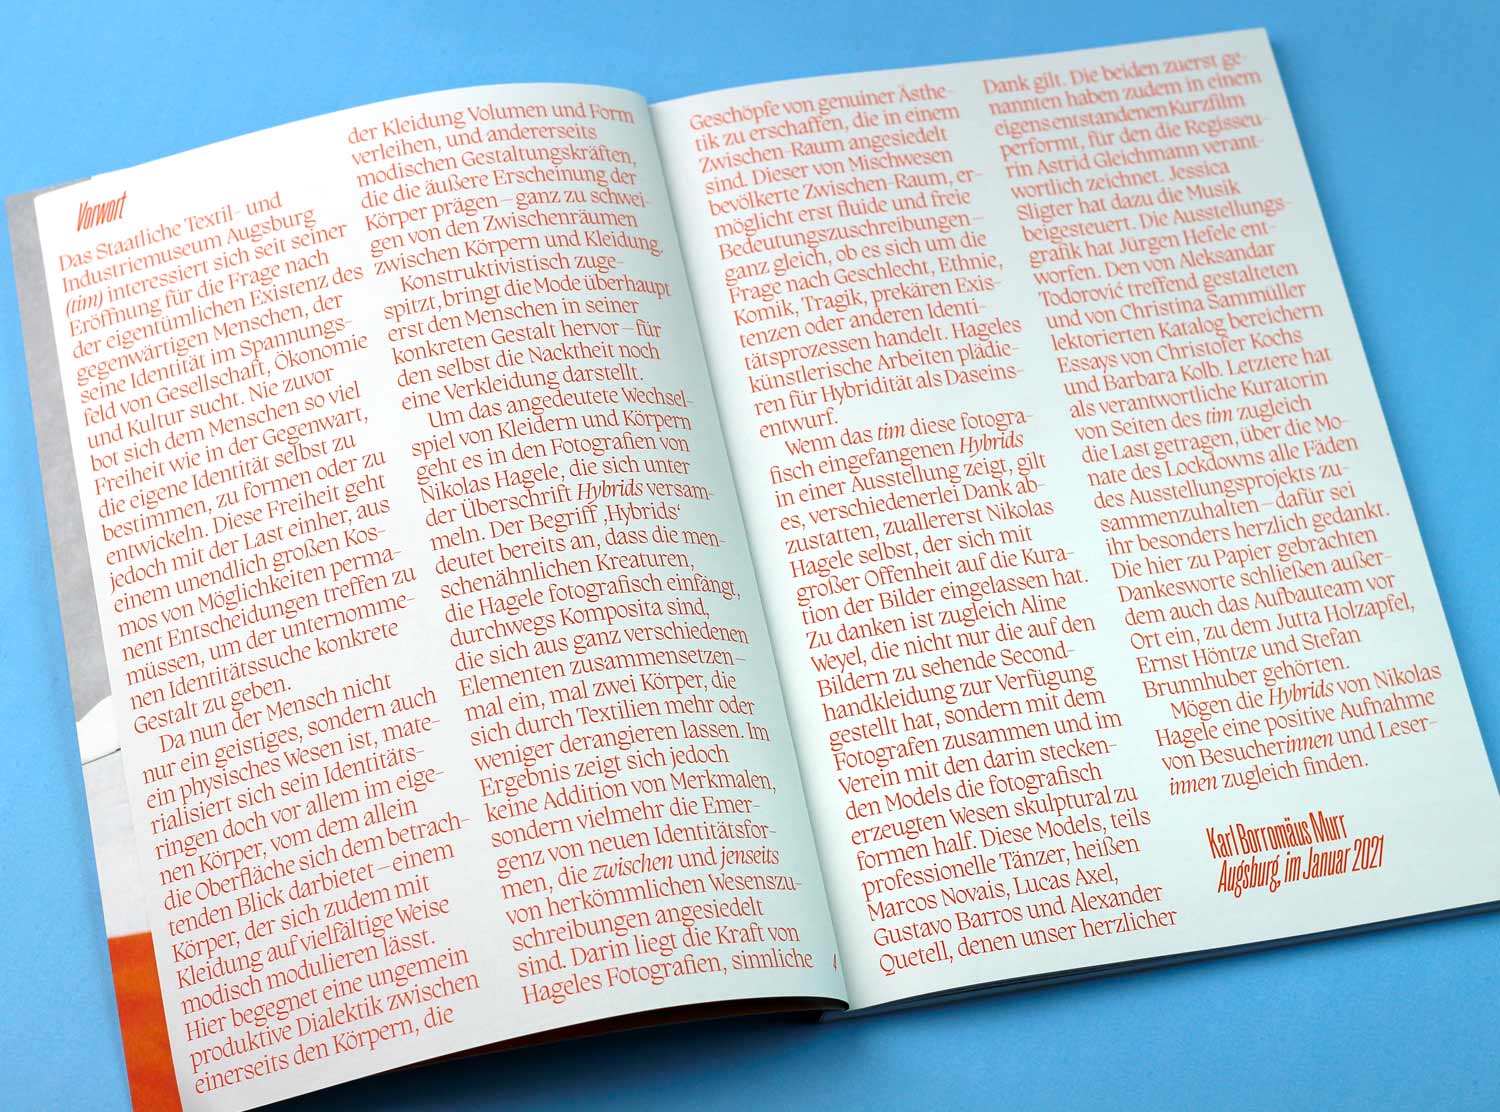 Vorwort
Das Staatliche Textil- und
Industriemuseum Augsburg
(tim) interessiert sich seit seiner
Eröffnung für die Frage nach
der eigentümlichen Existenz des
gegenwärtigen Menschen, der
seine Identität im Spannungs-
feld von Gesellschaft, Ökonomie
und Kultur sucht. Nie zuvor
bot sich dem Menschen so viel
Freiheit wie in der Gegenwart,
die eigene Identität selbst zu
bestimmen, zu formen oder zu
entwickeln. Diese Freiheit geht
jedoch mit der Last einher, aus
einem unendlich großen Kos-
mos von Möglichkeiten perma-
nent Entscheidungen treffen zu
müssen, um der unternomme-
nen Identitätssuche konkrete
Gestalt zu geben.
Da nun der Mensch nicht
nur ein geistiges, sondern auch
ein physisches Wesen ist, mate-
rialisiert sich sein Identitäts-
ringen doch vor allem im eige-
nen Körper, vom dem allein
die Oberfläche sich dem betrach-
tenden Blick darbietet – einem
Körper, der sich zudem mit
Kleidung auf vielfältige Weise
modisch modulieren lässt.
Hier begegnet eine ungemein
produktive Dialektik zwischen
einerseits den Körpern, die
der Kleidung Volumen und Form
verleihen, und andererseits
modischen Gestaltungskräften,
die die äußere Erscheinung der
Körper prägen – ganz zu schwei-
gen von den Zwischenräumen
zwischen Körpern und Kleidung.
Konstruktivistisch zuge-
spitzt, bringt die Mode überhaupt
erst den Menschen in seiner
konkreten Gestalt hervor – für
den selbst die Nacktheit noch
eine Verkleidung darstellt.
Um das angedeutete Wechsel-
spiel von Kleidern und Körpern
geht es in den Fotografien von
Nikolas Hagele, die sich unter
der Überschrift Hybrids versam-
meln. Der Begriff ‚Hybrids‘
deutet bereits an, dass die men-
schenähnlichen Kreaturen,
die Hagele fotografisch einfängt,
durchwegs Komposita sind,
die sich aus ganz verschiedenen
Elementen zusammensetzen –
mal ein, mal zwei Körper, die
sich durch Textilien mehr oder
weniger derangieren lassen. Im
Ergebnis zeigt sich jedoch
keine Addition von Merkmalen,
sondern vielmehr die Emer-
genz von neuen Identitätsfor-
men, die zwischen und jenseits
von herkömmlichen Wesenszu-
schreibungen angesiedelt
sind. Darin liegt die Kraft von
Hageles Fotografien, sinnliche
4
Geschöpfe von genuiner Ästhe-
tik zu erschaffen, die in einem
Zwischen-Raum angesiedelt
sind. Dieser von Mischwesen
bevölkerte Zwischen-Raum, er-
möglicht erst fluide und freie
Bedeutungszuschreibungen –
ganz gleich, ob es sich um die
Frage nach Geschlecht, Ethnie,
Komik, Tragik, prekären Exis-
tenzen oder anderen Identi-
tätsprozessen handelt. Hageles
künstlerische Arbeiten plädie-
ren für Hybridität als Daseins-
entwurf.
Wenn das tim diese fotogra-
fisch eingefangenen Hybrids
in einer Ausstellung zeigt, gilt
es, verschiedenerlei Dank ab-
zustatten, zuallererst Nikolas
Hagele selbst, der sich mit
großer Offenheit auf die Kura-
tion der Bilder eingelassen hat.
Zu danken ist zugleich Aline
Weyel, die nicht nur die auf den
Bildern zu sehende Second-
handkleidung zur Verfügung
gestellt hat, sondern mit dem
Fotografen zusammen und im
Verein mit den darin stecken-
den Models die fotografisch
erzeugten Wesen skulptural zu
formen half. Diese Models, teils
professionelle Tänzer, heißen
Marcos Novais, Lucas Axel,
Gustavo Barros und Alexander
Quetell, denen unser herzlicher
Dank gilt. Die beiden zuerst ge-
nannten haben zudem in einem
eigens entstandenen Kurzfilm
performt, für den die Regisseu-
rin Astrid Gleichmann verant-
wortlich zeichnet. Jessica
Sligter hat dazu die Musik
beigesteuert. Die Ausstellungs-
grafik hat Jürgen Hefele ent-
worfen. Den von Aleksandar
Todorović treffend gestalteten
und von Christina Sammüller
lektorierten Katalog bereichern
Essays von Christofer Kochs
und Barbara Kolb. Letztere hat
als verantwortliche Kuratorin
von Seiten des tim zugleich
die Last getragen, über die Mo-
nate des Lockdowns alle Fäden
des Ausstellungsprojekts zu-
sammenzuhalten – dafür sei
ihr besonders herzlich gedankt.
Die hier zu Papier gebrachten
Dankesworte schließen außer-
dem auch das Aufbauteam vor
Ort ein, zu dem Jutta Holzapfel,
Ernst Höntze und Stefan
Brunnhuber gehörten.
Mögen die Hybrids von Nikolas
Hagele eine positive Aufnahme
von Besucherinnen und Leser-
innen zugleich finden.
Karl Borromäus Murr
Augsburg, im Januar 2021